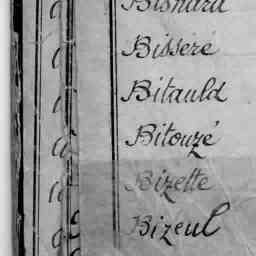 Bisnard
Bisséré
Bitauld
Bitouzé
Bizette
Bizeul